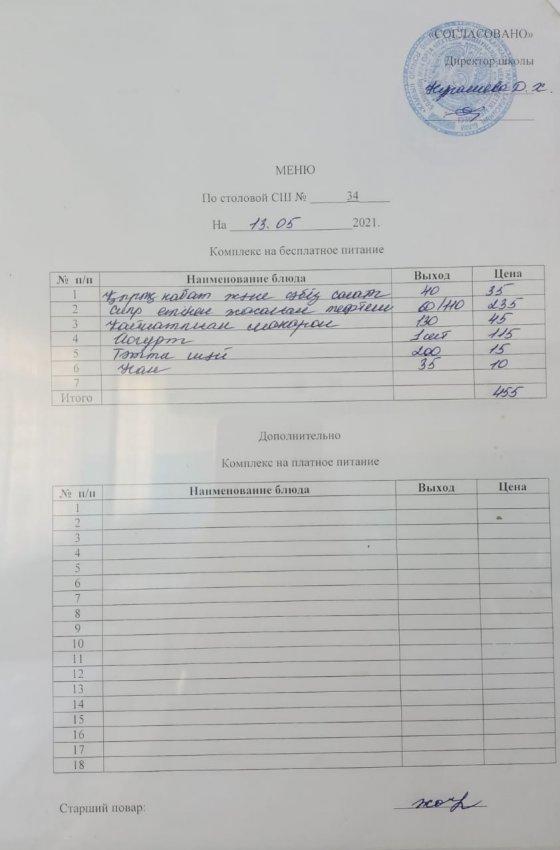 «СОГЛАСОВАНО»
Директор школы
МЕНЮ
По столовой СШ № 34
На 13.05 2021.
Комплекс на бесплатное питание
№ п/п Наименование блюда Выход Цена
1 қабат және сәбіз 40 35
2 етінен жасалған тефтели 60/110 235
3 Қайнатылған макарон 130 45
4 Йогурт 1 шт 115
5 Тәтті шәй 200 15
6 Нан 35 10
7
Итого 455
Дополнительно
Комплекс на платное питание
№ п/п Наименование блюда Выход Цена
1
2
3
4
5
6
7
8
9
10
11
12
13
14
15
16
17
18
Старший повар: